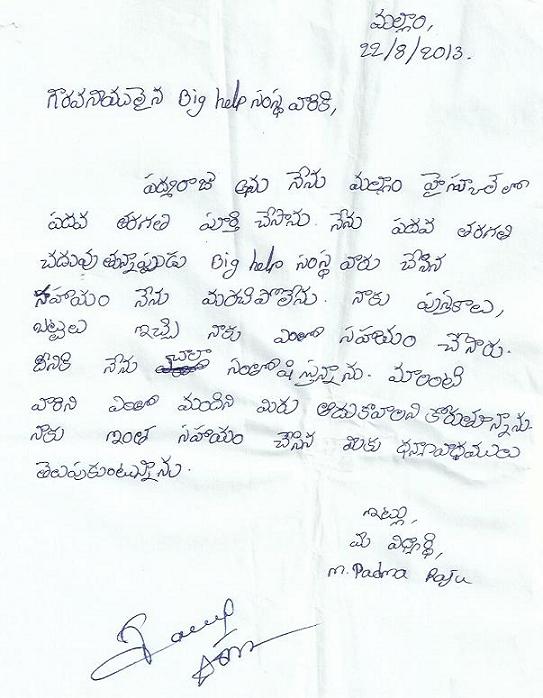 మల్లాం,
22/8/2013.
గౌరవనీయులైన Big help సంస్థ వారికి,
పద్మరాజు అను నేను మల్లాం హైస్కూల్ లో
పదవ తరగతి పూర్తి చేసాను. నేను పదవ తరగతి
చదువుతున్నప్పుడు Big help సంస్థ వారు చేసిన
సహాయం నేను మరచిపోలేను. నాకు పుస్తకాలు,
బట్టలు ఇచ్చి నాకు ఎంతో సహాయం చేసారు.
దీనికి నేను చాలా సంతోషిస్తున్నాను. మాలాంటి
వారిని ఎంతో మందిని మీరు ఆదుకోవాలని కోరుతూన్నాను
నాకు ఇంత సహాయం చేసిన మీకు ధన్యావాధములు
తెలుపుకుంటున్నాను.
ఇట్లు,
మీ విద్యార్థి,
M. Padma Raju